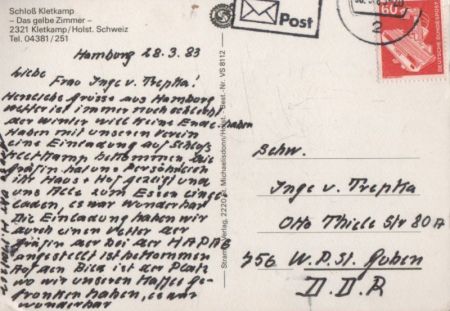 Schloß Kletkamp
– Das gelbe Zimmer –
2321 Kletkamp/Holst. Schweiz
Tel. 04381/251
Post
2
60
DEUTSCHE BUNDESPOST
Hamburg 28.3.83
Liebe
Frau Inge v. Trepka!
Herzliche Grüsse aus Hamburg
Wetter ist immer noch schlecht
der Winter will keine Ende haben
Haben mit unseren Verein
eine Einladung auf Schloß
Kletkamp bekommen, die
Gräfin hat uns Persönlich
ihr Haus + Hof gezeigt und
uns Alle zum Essen einge-
laden, es war wunderbar
Die Einladung haben wir
durch einen Vetter der
Gräfin der bei der HAPAG
angestellt ist bekommen
Auf den Bild ist der Platz
wo wir unseren Kaffee ge-
tronken haben, es war
wunderbar
Best.-Nr. VS 8112
Verlag, 2220 St. Michaelisdonn/Holst.
Schw.
Inge v. Trepka
Otto Thiele Str 80A
756 W.P.St. Guben
D.D.R